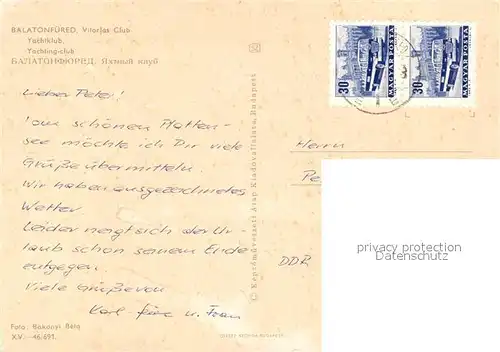 BALATONFÜRED, Vitorlás Club
Yachtklub,
Yachting-club
БАЛАТОНФЮРЕД, Яхтный клуб
30
MAGYAR POSTA
30
MAGYAR POSTA
Lieber Peter!
Vom schönen Platten-
see möchte ich Dir viele
Grüße übermitteln.
Wir haben ausgezeichnetes
Wetter
Leider neigt sich der Ur-
laub schon seinem Ende
entgegen.
Viele Grüße von
Karl- u. Frau
© Képzőművészeti Alap Kiadóvállalata, Budapest
Herrn
Pe
DDR
privacy protection
Datenschutz
Foto: Bakonyi Béla
XV.—46/691.